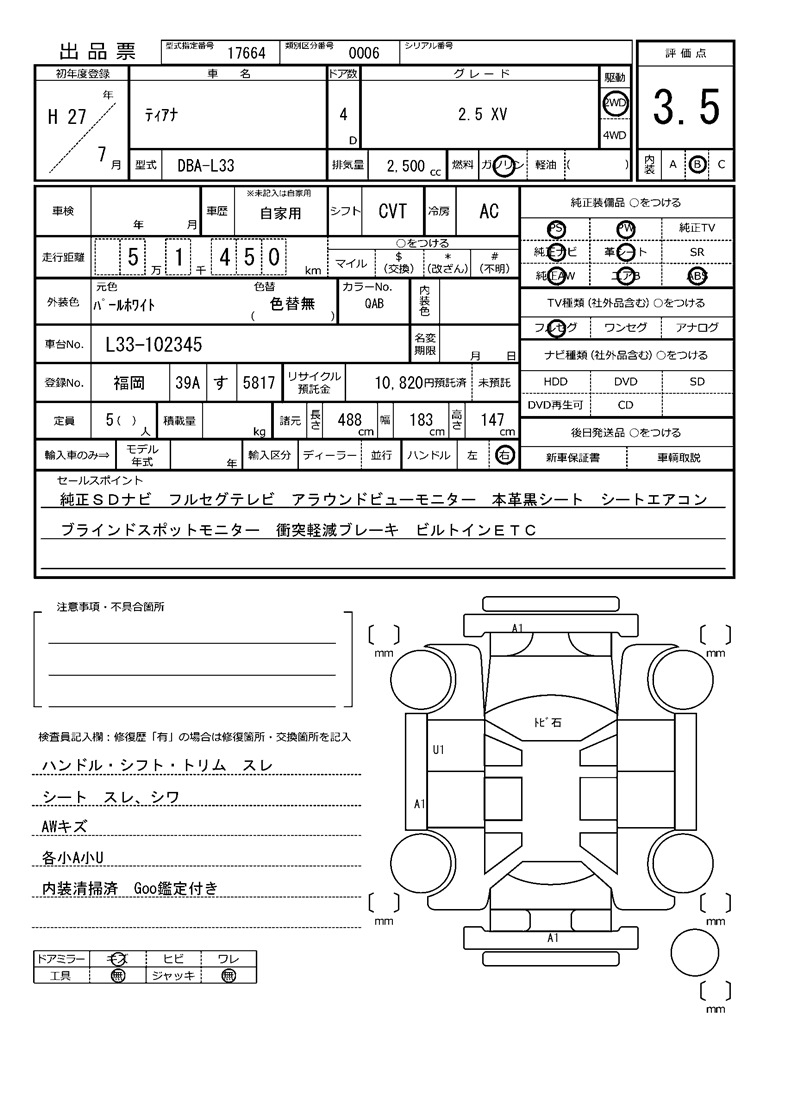 出品票 型式指定番号 17664 類別区分番号 0006 シリアル番号
評価点
初年度登録 車名 ドア数 グレード 駆動
H 27 年 ティアナ 4 D 2.5 XV 2WD 3.5
4WD
7 月 型式 DBA-L33 排気量 2,500 cc 燃料 ガソリン 軽油 ( ) 内装 A B C
車検 年 月 車歴 ※未記入は自家用 自家用 シフト CVT 冷房 AC 純正装備品 ○をつける
PS PW 純正TV
走行距離 5 万 1 千 4 5 0 km ○をつける
マイル $(交換) *(改ざん) #(不明)
純正ナビ 革シート SR
純正AW エアB ABS
外装色 元色 パールホワイト 色替 色替無 ( ) カラーNo. QAB 内装色
TV種類(社外品含む)○をつける
フルセグ ワンセグ アナログ
車台No. L33-102345 名変期限 月 日
ナビ種類(社外品含む)○をつける
登録No. 福岡 39A す 5817 リサイクル預託金 10,820円預託済 未預託
HDD DVD SD
DVD再生可 CD
定員 5( ) 人 積載量 kg 諸元 長さ 488 cm 幅 183 cm 高さ 147 cm
後日発送品 ○をつける
輸入車のみ⇒ モデル年式 年 輸入区分 ディーラー 並行 ハンドル 左 右
新車保証書 車輌取説
セールスポイント
純正SDナビ フルセグテレビ アラウンドビューモニター 本革黒シート シートエアコン
ブラインドスポットモニター 衝突軽減ブレーキ ビルトインETC
注意事項・不具合箇所
検査員記入欄:修復歴「有」の場合は修復箇所・交換箇所を記入
ハンドル・シフト・トリム スレ
シート スレ、シワ
AWキズ
各小A小U
内装清掃済 Goo鑑定付き
ドアミラー キズ ヒビ ワレ
工具 無 ジャッキ 無
A1
mm
mm
トビ石
U1
A1
mm
mm
A1
mm